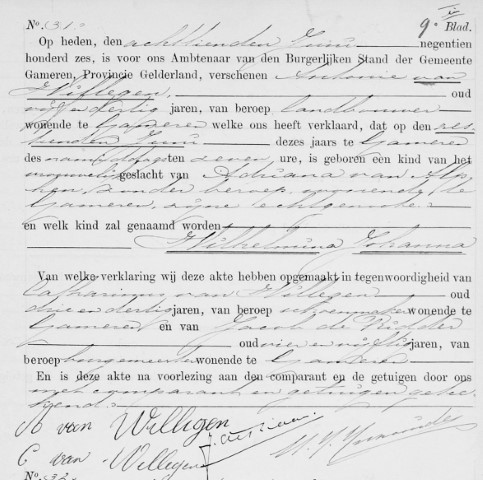 No. 31. 9e Blad.
Op heden, den achttienden Juni negentien
honderd zes, is voor ons Ambtenaar van den Burgerlijken Stand der Gemeente
Gameren, Provincie Gelderland, verschenen Antonie van
Willegen, oud
vijf en dertig jaren, van beroep landbouwer
wonende te Gameren welke ons heeft verklaard, dat op den zes-
tienden Juni dezes jaars te Gameren
des namiddags ten zeven ure, is geboren een kind van het
vrouwelijk geslacht van Adriana van
zonder beroep, wonende te
Gameren, zijne echtgenoote
en welk kind zal genaamd worden
Wilhelmina Johanna
Van welke verklaring wij deze akte hebben opgemaakt in tegenwoordigheid van
Catharinus van Willegen oud
drie en dertig jaren, van beroep schoenmaker wonende te
Gameren en van Jacob de Ridder
oud vier en vijftig jaren, van
beroep burgemeester wonende te Gameren
En is deze akte na voorlezing aan den comparant en de getuigen door ons
met comparant en getuigen getee-
kend.
A van Willigen
C van Willegen
No. 32.